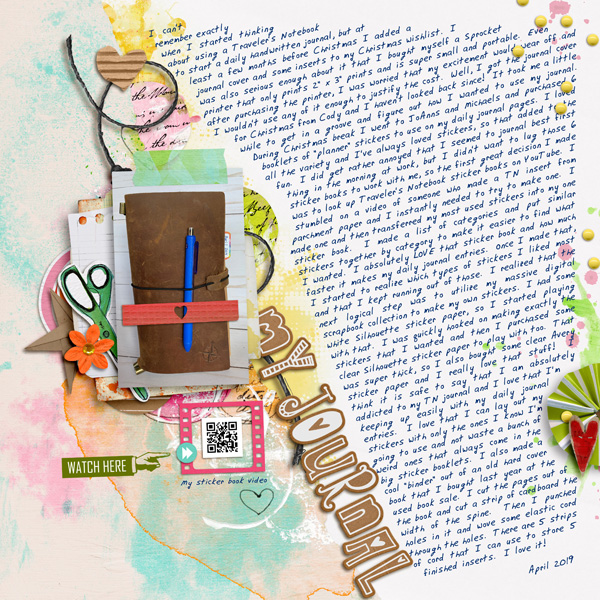 I can't
remember exactly
when I started thinking
about using a Traveler's Notebook
to start a daily handwritten journal, but at
least a few months before Christmas I added a
journal cover and some inserts to my Christmas wishlist. I
was also serious enough about it that I bought myself a Sprocket
printer that only prints 2" x 3" prints and is super small and portable. Even
after purchasing the printer, I was worried that my excitement would wear off and
I wouldn't use any of it enough to justify the cost. Well, I got the journal cover
for Christmas from Cody and I haven't looked back since! It took me a little
while to get in a groove and figure out how I wanted to use my journal.
During Christmas break I went to JoAnns and michaels and purchased 6
booklets of "planner" stickers to use on my daily journal pages. I loved
all the variety and I've always loved stickers, so that added to the
fun. I did get rather annoyed that I seemed to journal best first
thing in the morning at work, but I didn't want to lug those 6
sticker books to work with me, so the first great decision I made
was to look up Traveler's Notebook sticker books on YouTube. I
stumbled on a video of someone who made a TN insert from
parchment paper and I instantly needed to try to make one. I
made one and then transferred my most used stickers into my one
sticker book. I made a list of categories and put similar
stickers together by category to make it easier to find what
I wanted. I absolutely LOVE that sticker book and how much
faster it makes my daily journal entries. Once I made that,
I started to realize which types of stickers I liked most
and that I kept running out of those. I realized that the
next logical step was to utilize my massive digital
scrapbook collection to make my own stickers. I had some
white silhouette sticker paper, so I started playing
with that. I was quickly hooked on making exactly the
stickers that I wanted and then I purchased some
clear silhouette sticker paper to play with too. That
was super thick, so I also bought some clear Avery
sticker paper and I really love that stuff! I
think it is safe to say that I am absolutely
addicted to my TN journal and I love that I'm
keeping up easily with my daily journal
entries. I love that I can lay out my
stickers with only the ones I know I'm
going to use and not waste a bunch of
weird ones that always come in the
big sticker booklets. I also made a
cool "binder" out of an old hard cover
book that I bought last year at the
used book sale. I cut the pages out of
the book and cut a strip of cardboard the
width of the spine. Then I punched
holes in it and wove some elastic cord
through the holes. There are 5 strips
of cord that I can use to store 5
finished inserts. I love it!
April 2019
MY JOURNAL
WATCH HERE
my sticker book video